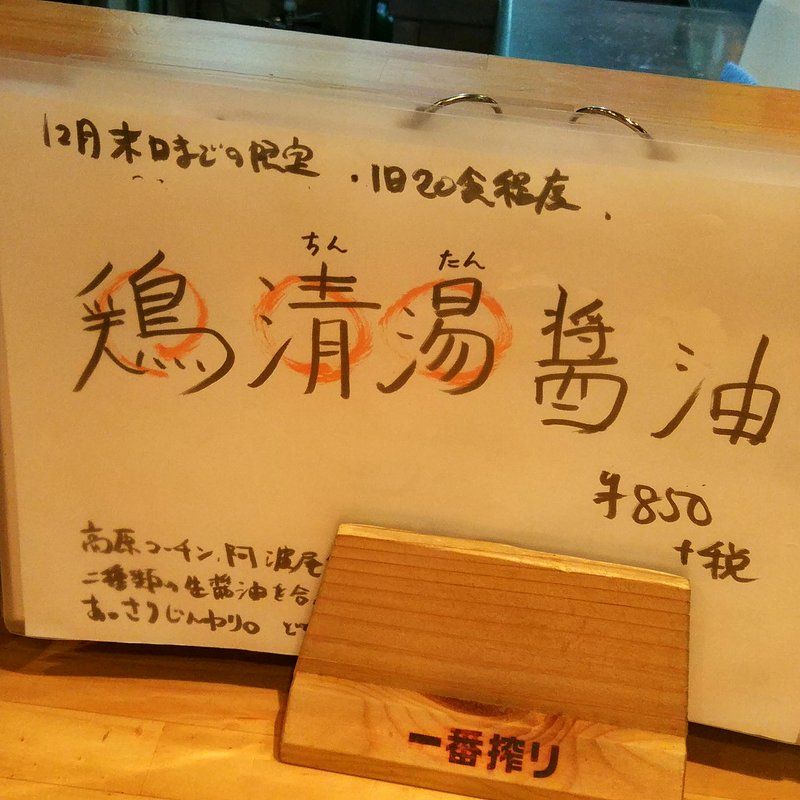 12月末日までの限定
・1日20食程度.
ちん たん
鶏清湯醤油
¥850
+税
高原コーチン、阿波尾
二種類の生醤油を合
あっさりじんわり。
一番搾り